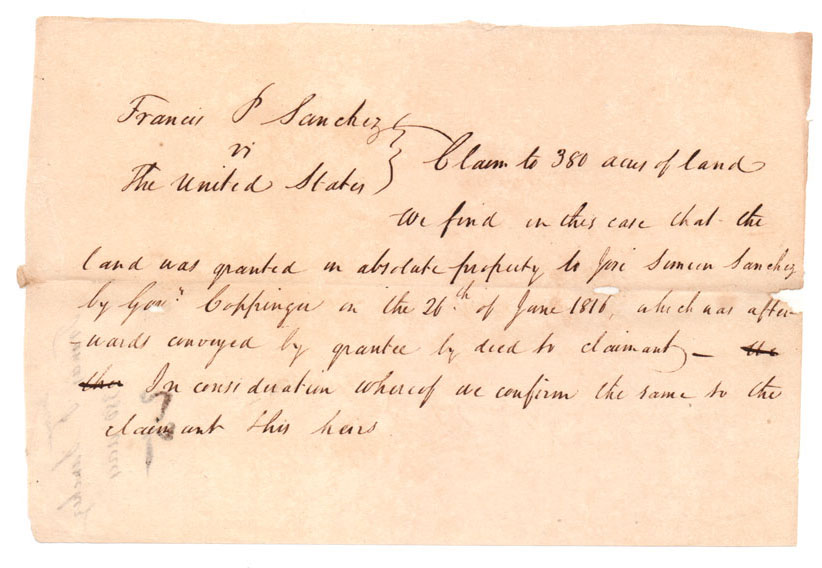 Francis P Sanchez
vs
The United States } Claim to 380 acres of land
We find in this case that the
land was granted in absolute property to José Simeon Sanchez
by Govr. Coppinger on the 26th of June 1816, which was after-
wards conveyed by grantee by deed to claimant — We
ther In consideration whereof we confirm the same to the
claimant & his heirs